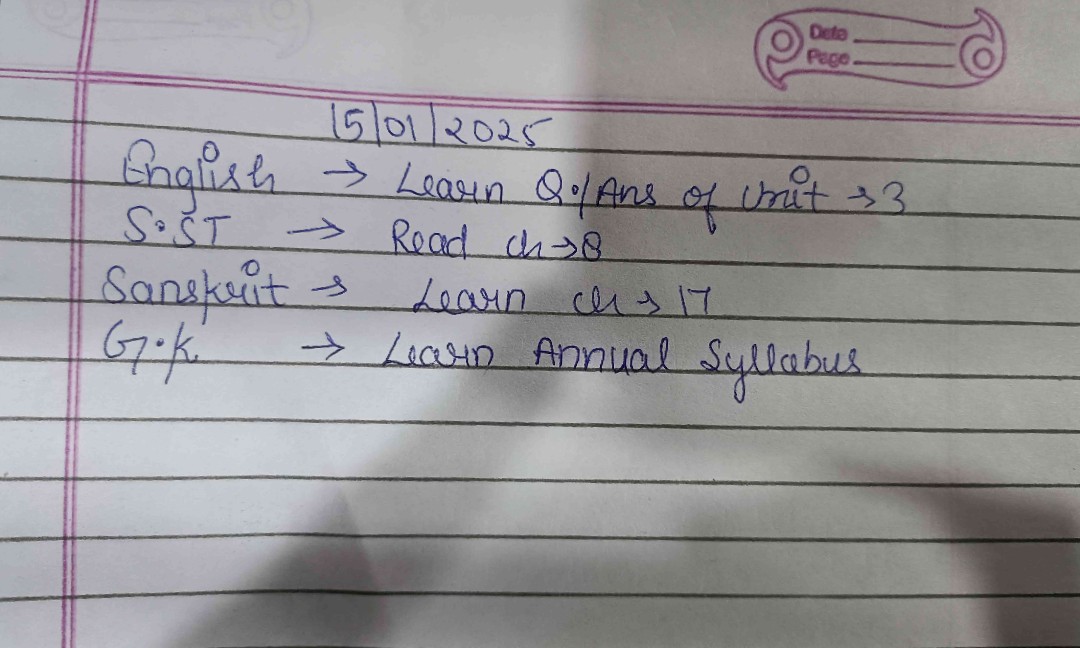 Date
Page
15/01/2025
English → Learn Q./Ans of Unit → 3
S.ST → Read ch → 8
Sanskrit → Learn ch → 17
G.K → Learn Annual Syllabus